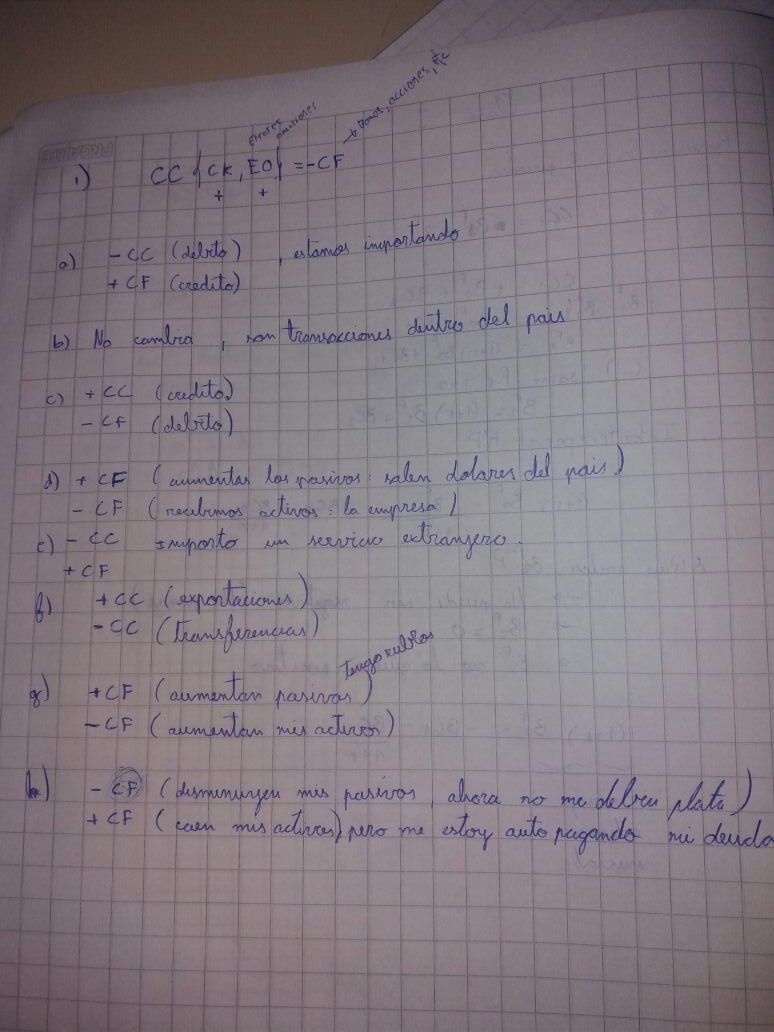 Errores
omisiones
→ bonos, acciones, etc
1) CC {CK, EO} = -CF
+ +
a) - CC (debito) , estamos importando
+ CF (credito)
b) No cambia , son transacciones dentro del pais
c) + CC (credito)
- CF (debito)
d) + CF (aumentas los pasivos: salen dolares del pais)
- CF (recibimos activos: la empresa)
e) - CC Importo un servicio extranjero.
+ CF
f) + CC (exportaciones)
- CC (transferencias)
Tengo rublos
g) + CF (aumentan pasivos)
- CF (aumentan mis activos)
h) - CF (disminuyen mis pasivos, ahora no me deben plata)
+ CF (caen mis activos) pero me estoy auto pagando mi deuda